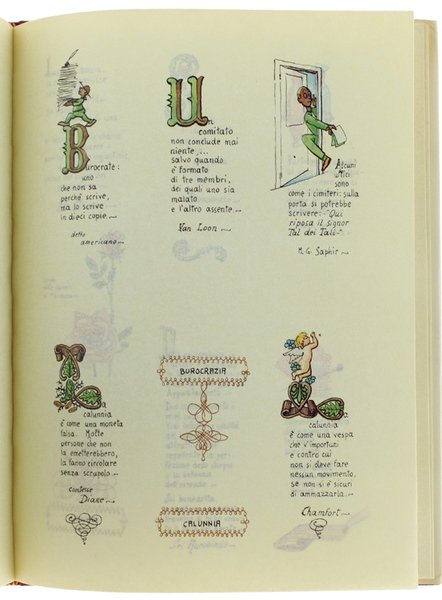 Burocrate:
uno
che non sa
perché scrive,
ma lo scrive
in dieci copie.
detto
americano
Un
comitato
non conclude mai
niente,...
salvo quando
è formato
di tre membri,
dei quali uno sia
malato
e l'altro assente.
Van Loon
Alcuni
uffici
sono
come i cimiteri: sulla
porta si potrebbe
scrivere: "Qui
riposa il signor
Tal dei Tali"
M. G. Saphir
La
calunnia
è come una moneta
falsa. Molte
persone che non
la emetterebbero,
la fanno circolare
senza scrupolo
contesse
Diane
BUROCRAZIA
CALUNNIA
La
calunnia
è come una vespa
che v'importuni
e contro cui
non si deve fare
nessun movimento,
se non si è sicuri
di ammazzarla.
Chamfort